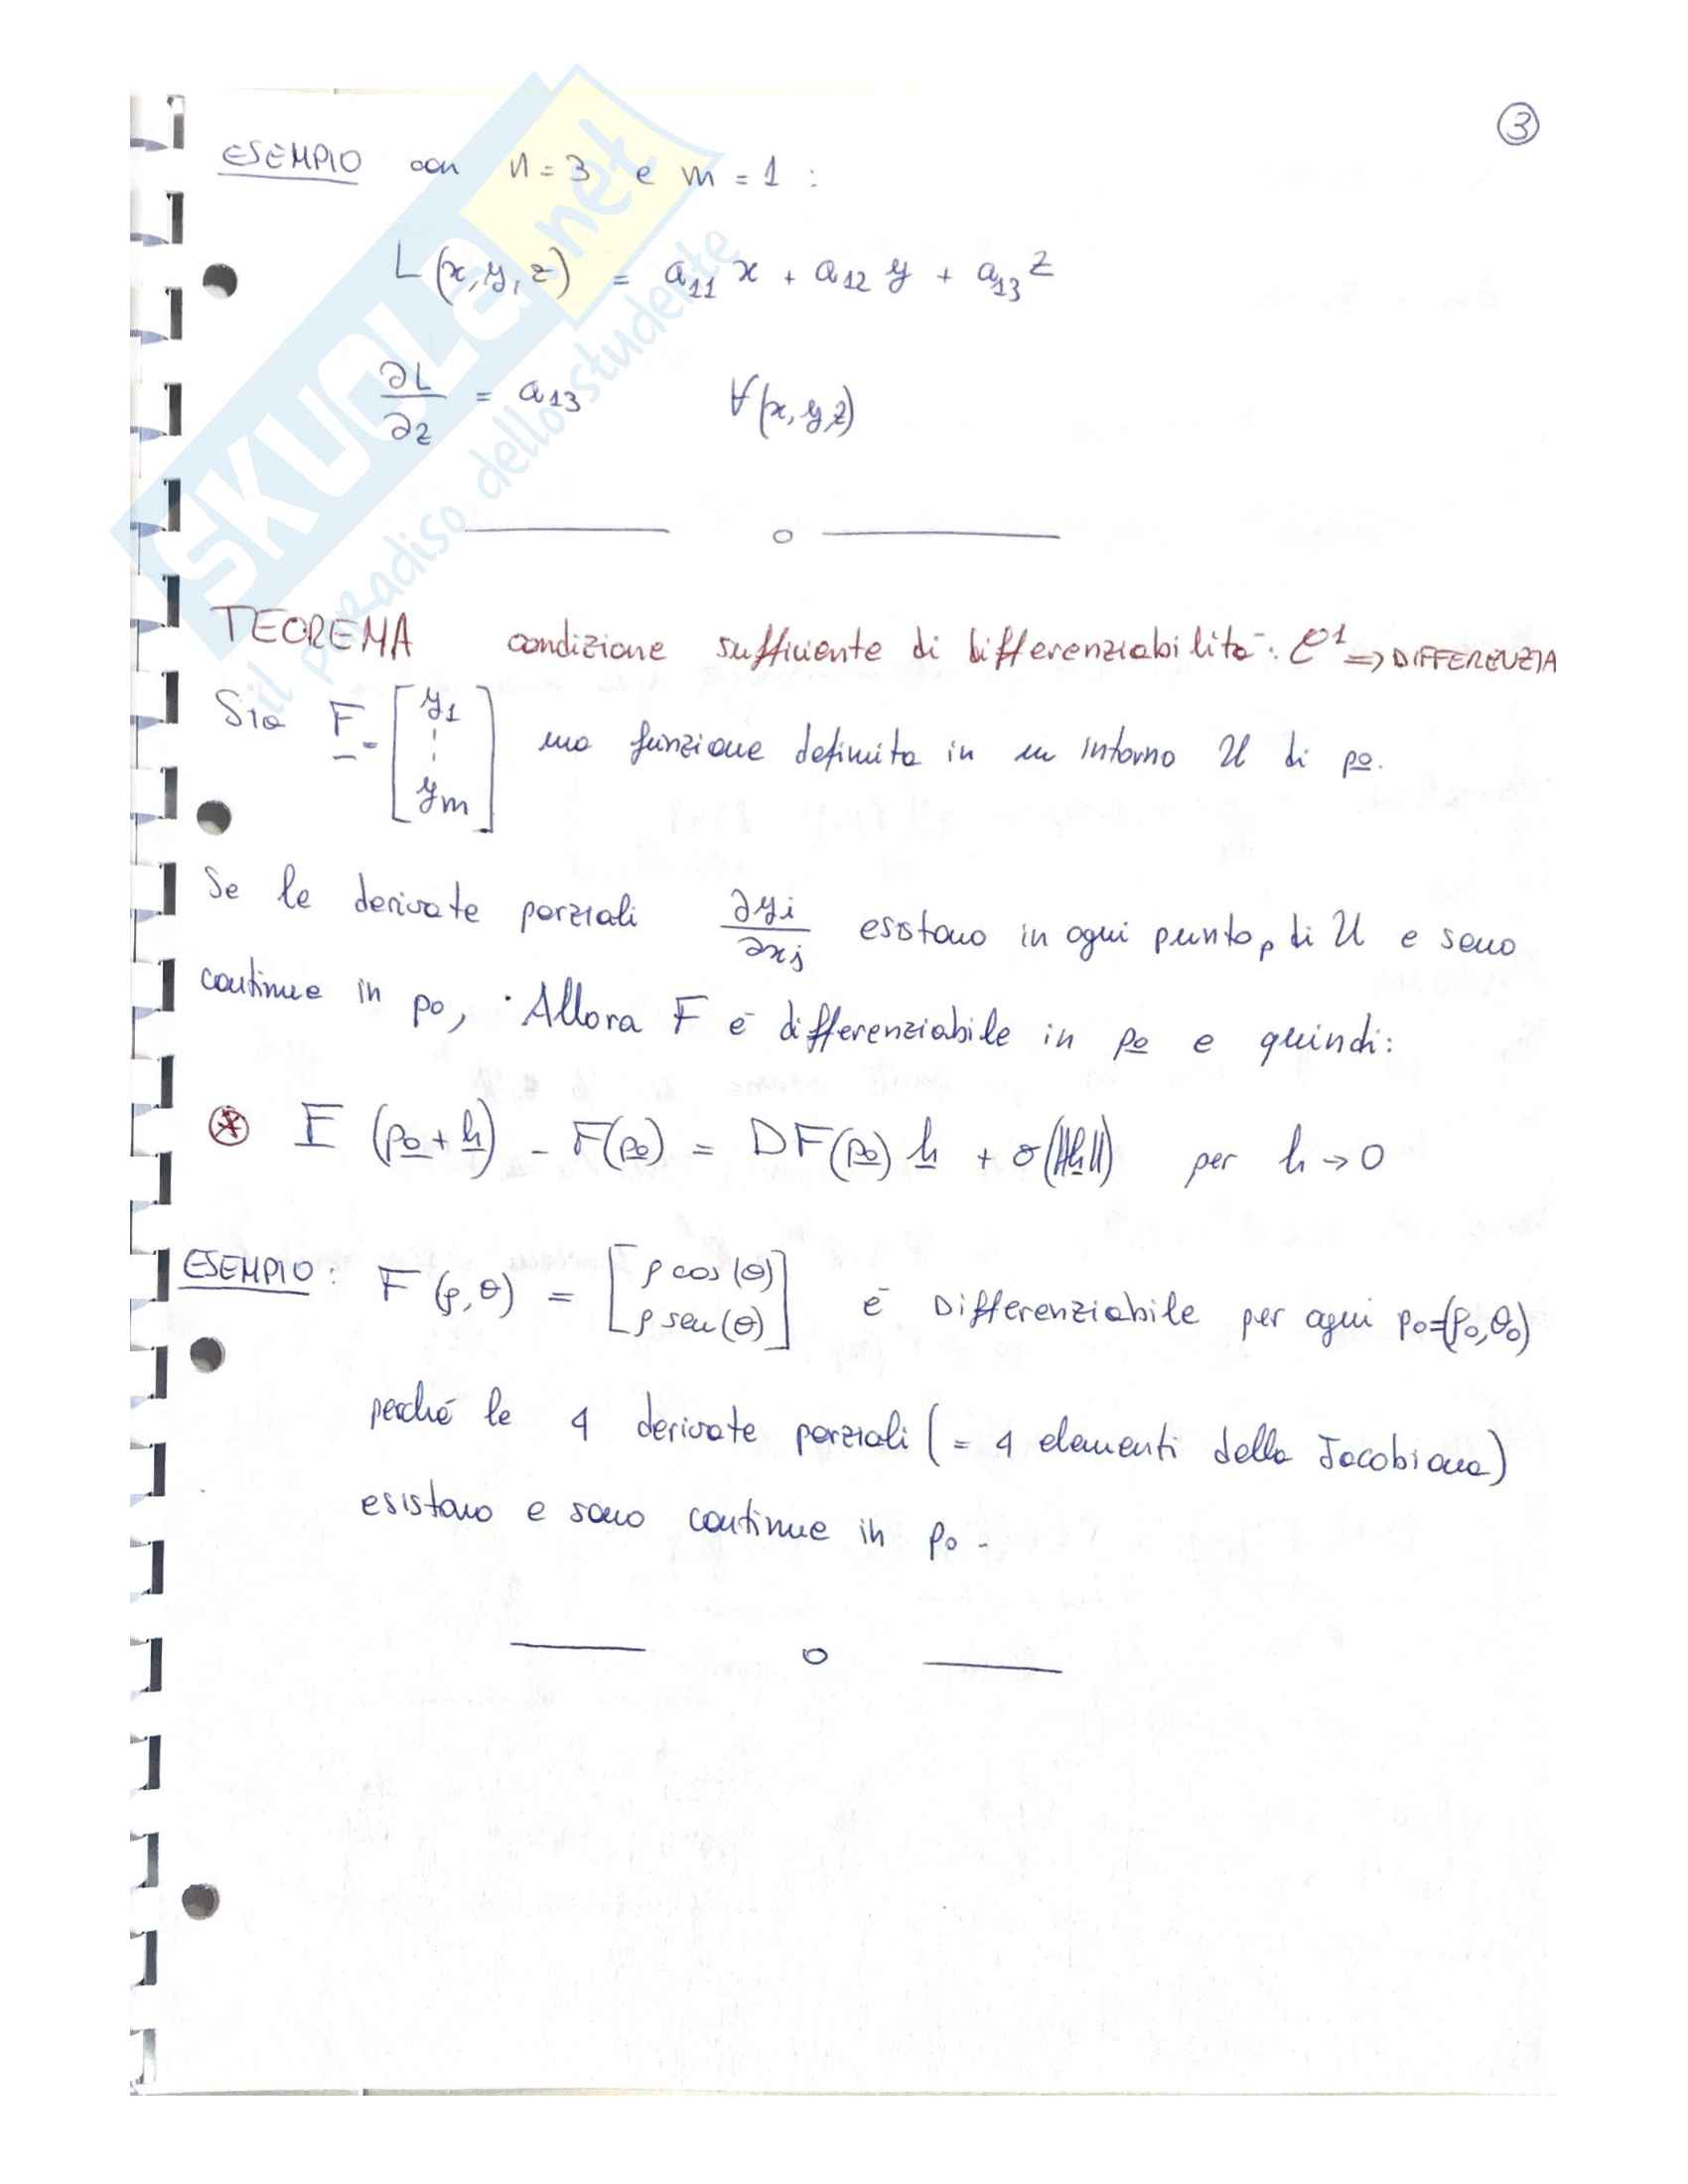 ③
ESEMPIO con n = 3 e m = 1 :
L (x, y, z) = a₁₁ x + a₁₂ y + a₁₃ z
∂L/∂z = a₁₃ ∀(x, y, z)
o
TEOREMA condizione sufficiente di differenziabilità: C¹ => DIFFERENZIA
Sia F = [y₁ ⋮ yₘ] una funzione definita in un intorno U di p₀.
Se le derivate parziali ∂yᵢ/∂xⱼ esistono in ogni punto p di U e sono
continue in p₀, · Allora F è differenziabile in p₀ e quindi:
⊛ F (p₀ + h) - F(p₀) = DF(p₀) h + o(||h||) per h → 0
ESEMPIO : F (ρ, θ) = [ρ cos(θ) ρ sen(θ)] è Differenziabile per ogni p₀=(ρ₀, θ₀)
perché le 4 derivate parziali (= 4 elementi della Jacobiana)
esistono e sono continue in p₀ -
o
SKUOLA.net
il paradiso dello studente